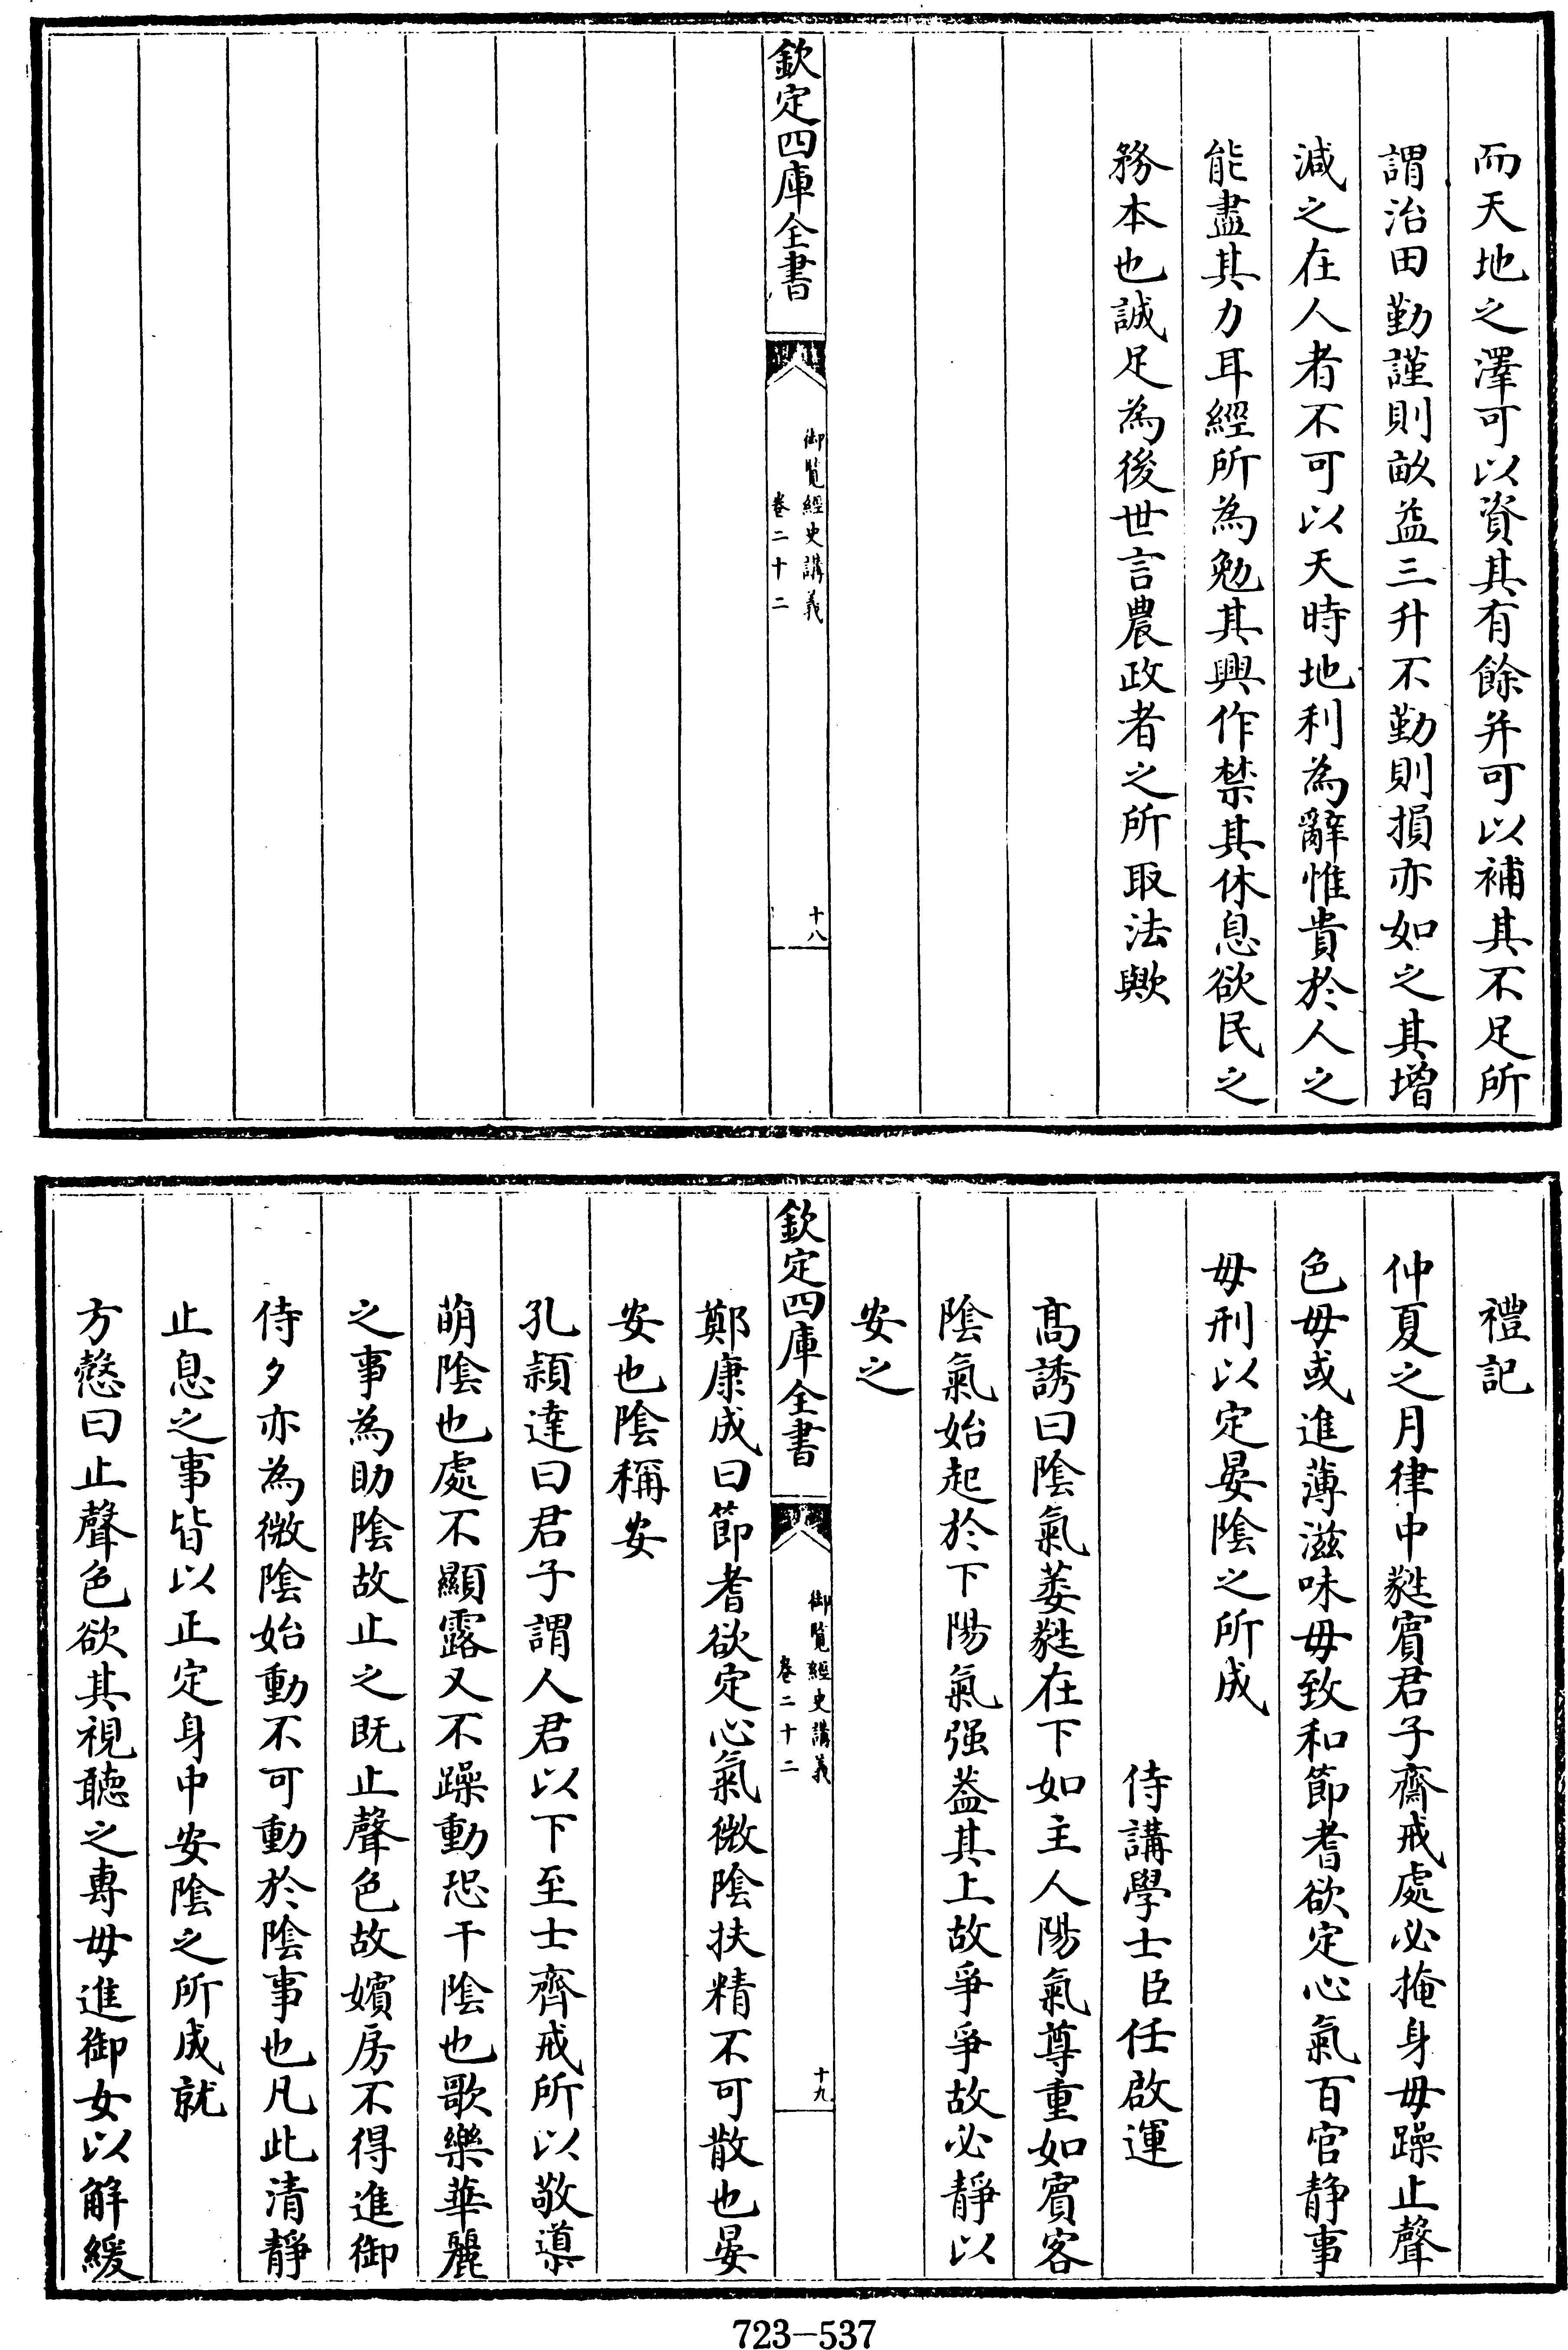 而天地之澤可以資其有餘并可以補其不足所
謂治田勤謹則畝益三升不勤則損亦如之其增
減之在人者不可以天時地利為辭惟貴於人之
能盡其力耳經所為勉其興作禁其休息欲民之
務本也誠足為後世言農政者之所取法歟
欽定四庫全書
御覽經史講義
卷二十二
十八
禮記
仲夏之月律中蕤賓君子齋戒處必掩身毋躁止聲
色毋或進薄滋味毋致和節耆欲定心氣百官靜事
毋刑以定晏陰之所成
侍講學士臣任啟運
高誘曰陰氣萎蕤在下如主人陽氣尊重如賓客
陰氣始起於下陽氣强葢其上故爭爭故必靜以
安之
欽定四庫全書
御覽經史講義
卷二十二
十九
鄭康成曰節耆欲定心氣微陰扶精不可散也晏
安也陰稱安
孔穎達曰君子謂人君以下至士齊戒所以敬導
萌陰也處不顯露又不躁動恐干陰也歌樂華麗
之事為助陰故止之既止聲色故嬪房不得進御
侍夕亦為微陰始動不可動於陰事也凡此清靜
止息之事皆以正定身中安陰之所成就
方慤曰止聲色欲其視聽之專毋進御女以解緩
723-537